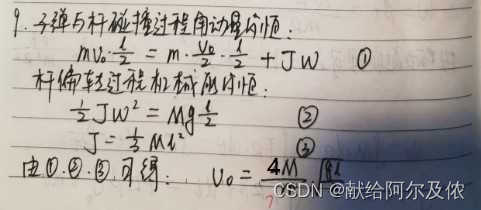 9. 子弹与杆碰撞过程角动量守恒:
mv₀·l/2 = m·v₀/2·l/2 + Jω ①
杆偏转过程机械能守恒:
1/2Jω² = Mg l/2 ②
J = 1/3Ml² ③
由①.②.③.可得: v₀ = 4M
CSDN @献给阿尔及侬